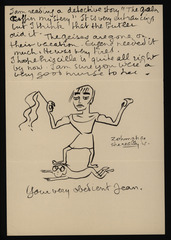 I am reading a detective story "The
mystery" It is very intriguing
but I think that the Butler
did it. The Geisers are gone, on
their vacation. Eugen needed it
much. He was very tired.
I hope Priscilla is quite all right
by now. I am sure you were a
very good nurse to her.
Your very obedient Jean.